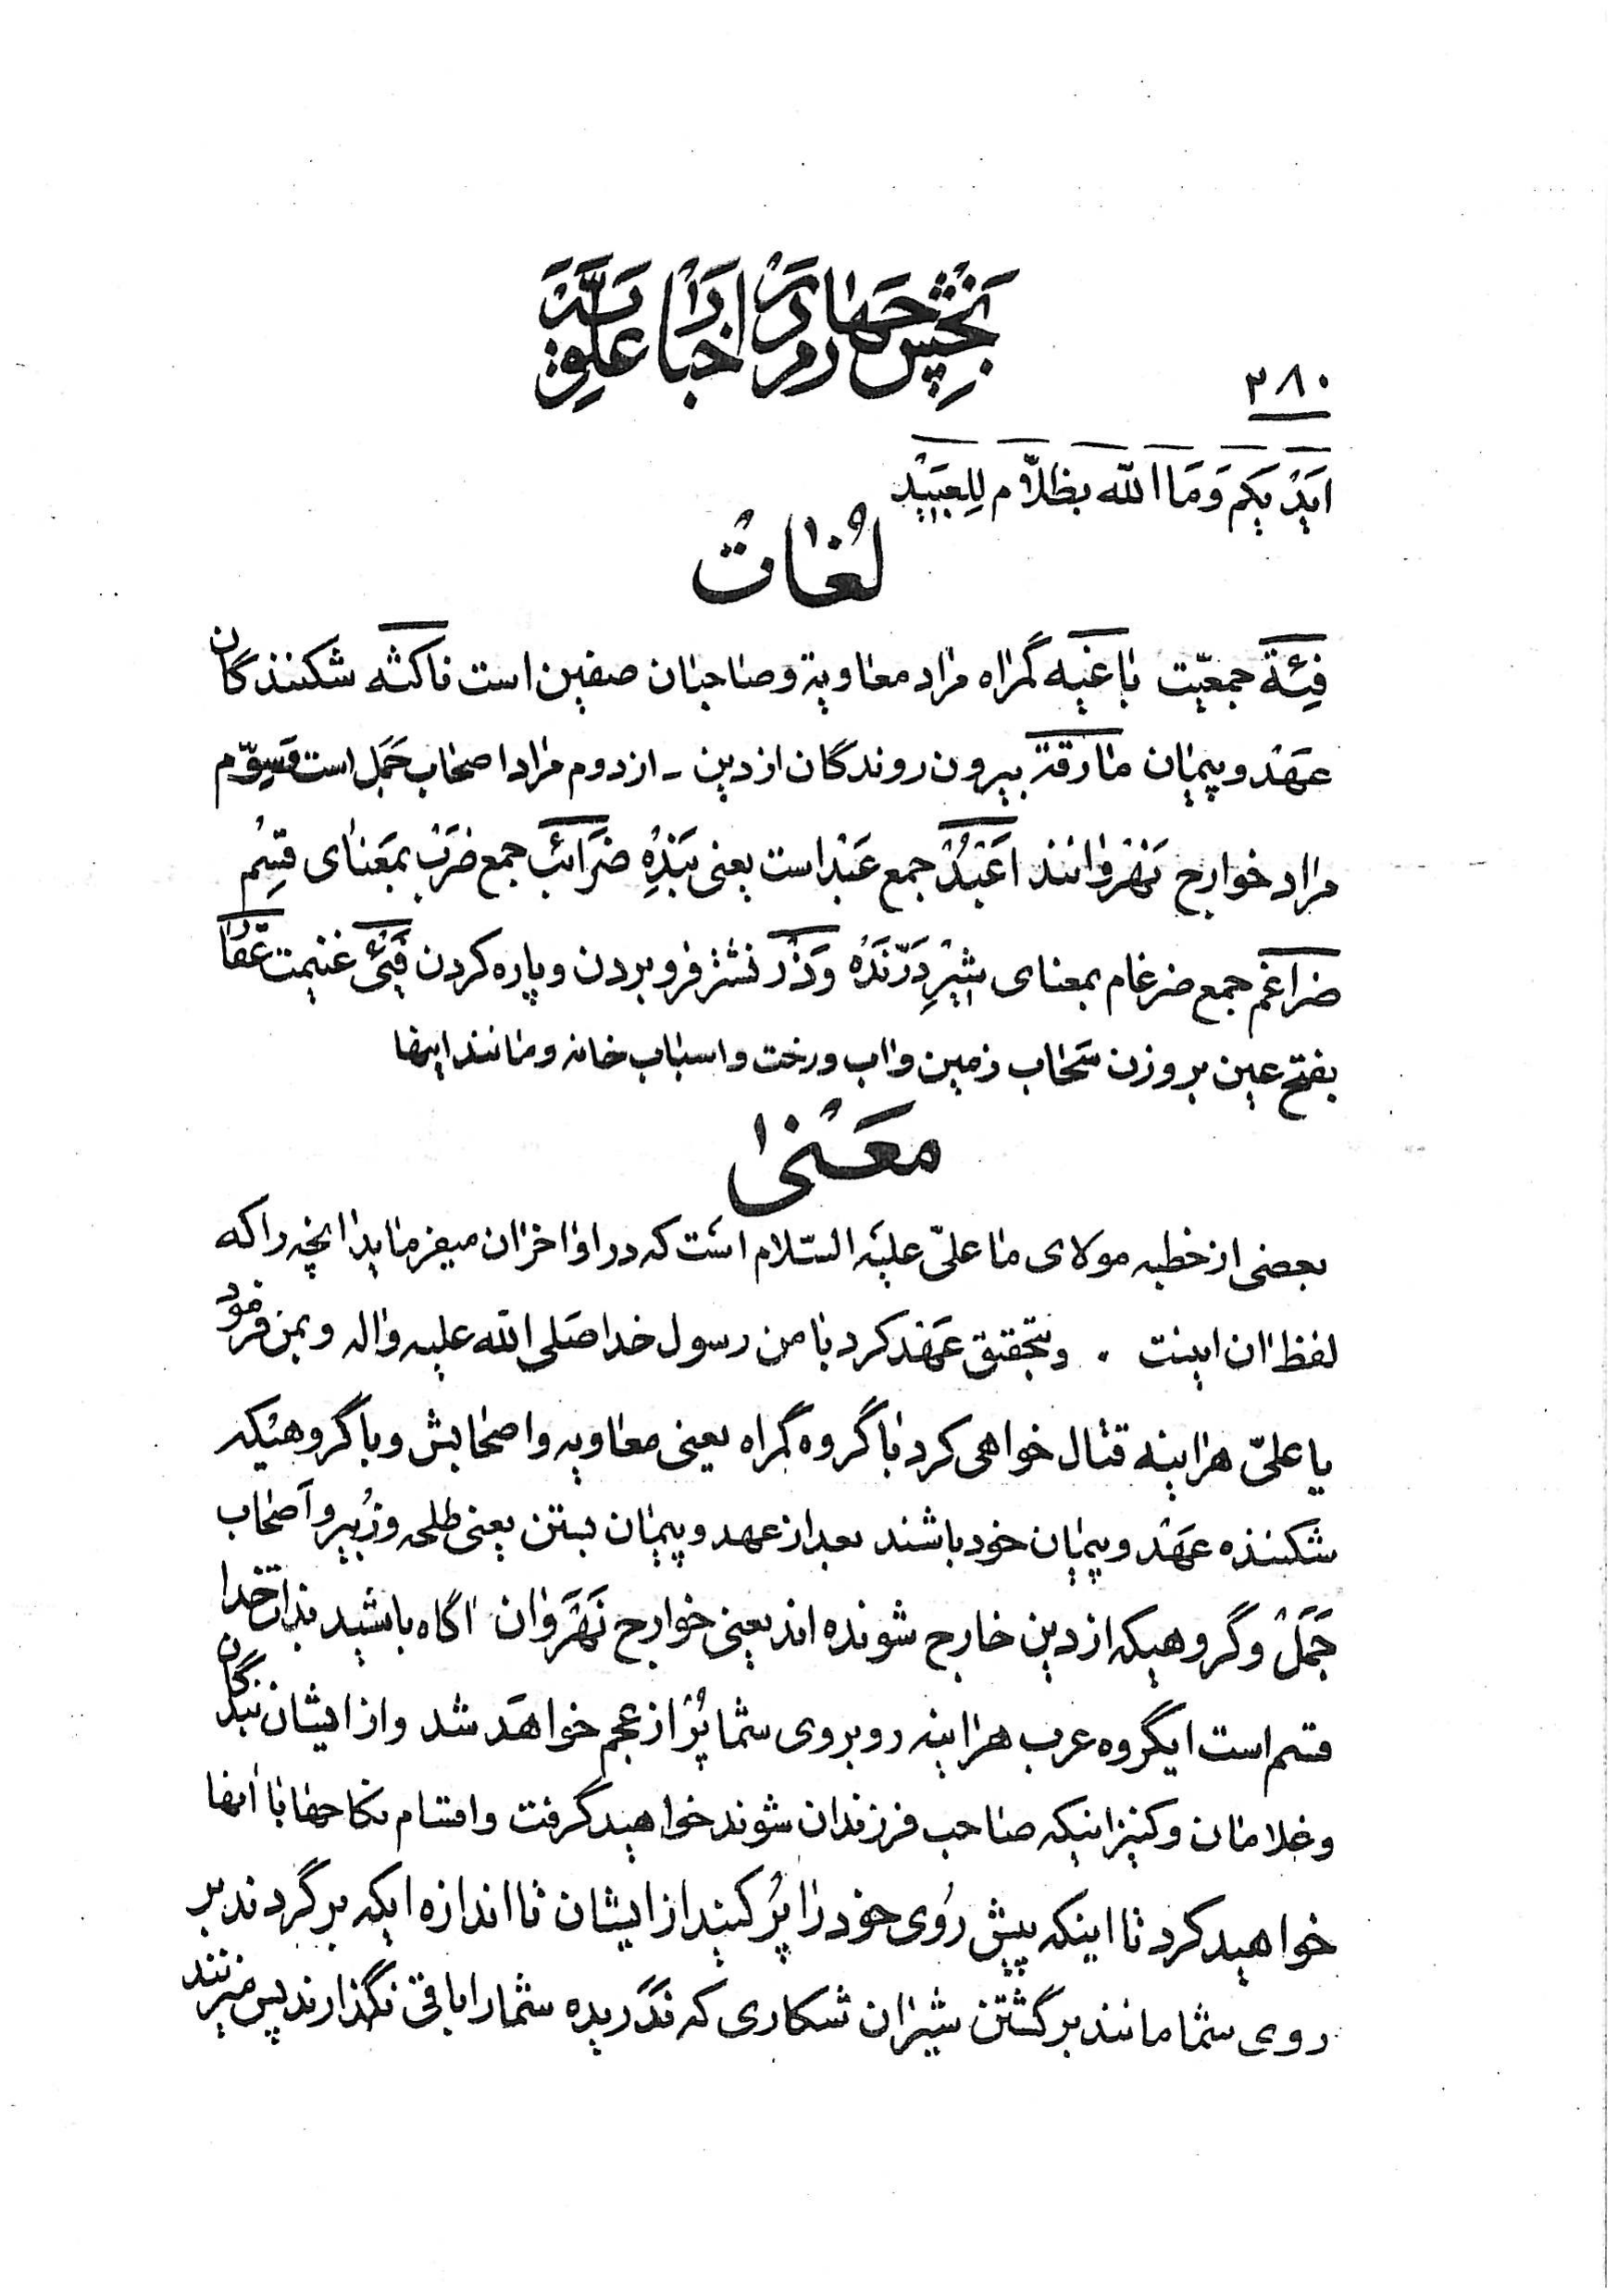 بَخْشِ چَهارم دَر اَخبار عَلَویَّه
۲۸۰
اَیْدیکُم وَمَا اللّه بظَلاّم لِلعَبیدِ
لُغاتْ
فِئَة جمعیّت باغیه گمراه مراد معاویة و صاحبان صفین است ناکثه شکنندگان
عَهْد و پیمان مارقة بیرون روندگان از دین - از دوم مراد اصحاب جَمَل است و سِوّم
مراد خوارج نَهْروانند اَعْبُدْ جمع عَبْد است یعنی بَنْدِه ضَرائب جمع ضَرْب بمَعنای قِسْم
ضراغم جمع ضرغام بمعنای شیْرِ دَرّنَدَه وَذْر نشتر فرو بردن و پاره کردن فَیْئ غنیمت عَقار
بفتح عین بر وزن سَحاب زمین و اب و رخت و اسباب خانه و مانند اینها
معَنْی
بعضی از خطبه مولای ما علیّ علیه السّلام اسْت که در اواخر ان میفرماید انچه را که
لفظ ان اینست . و بتحقیق عَهْد کرد با من رسول خدا صَلی اللّه علیه واله و بمن فرمود
یا علیّ هراینه قتال خواهی کرد با گروه گمراه یعنی معاویه و اصحابش و با گروهیکه
شکننده عَهْد و پیمان خود باشند بعد از عهد و پیمان بستن یعنی طلحه و زُبیر و اَصحاب
جَمَلْ و گروهیکه از دین خارج شونده اند یعنی خوارج نَهْرَوان اگاه باشید بذات خدا
قسم است ایگروه عرب هراینه روبروی شما پُر از عجم خواهَد شد و از ایشان بندگان
و غلامان و کنیزانیکه صاحب فرزندان شوند خواهید گرفت و اقسام نکاحها با انها
خواهید کرد تا اینکه پیش رُوی خود را پُر کنید از ایشان تا اندازه ایکه برگردند بر
روی شما مانند برگشتن شیران شکاری که نَدَریده شما را باقی نگذارند پس میزنند